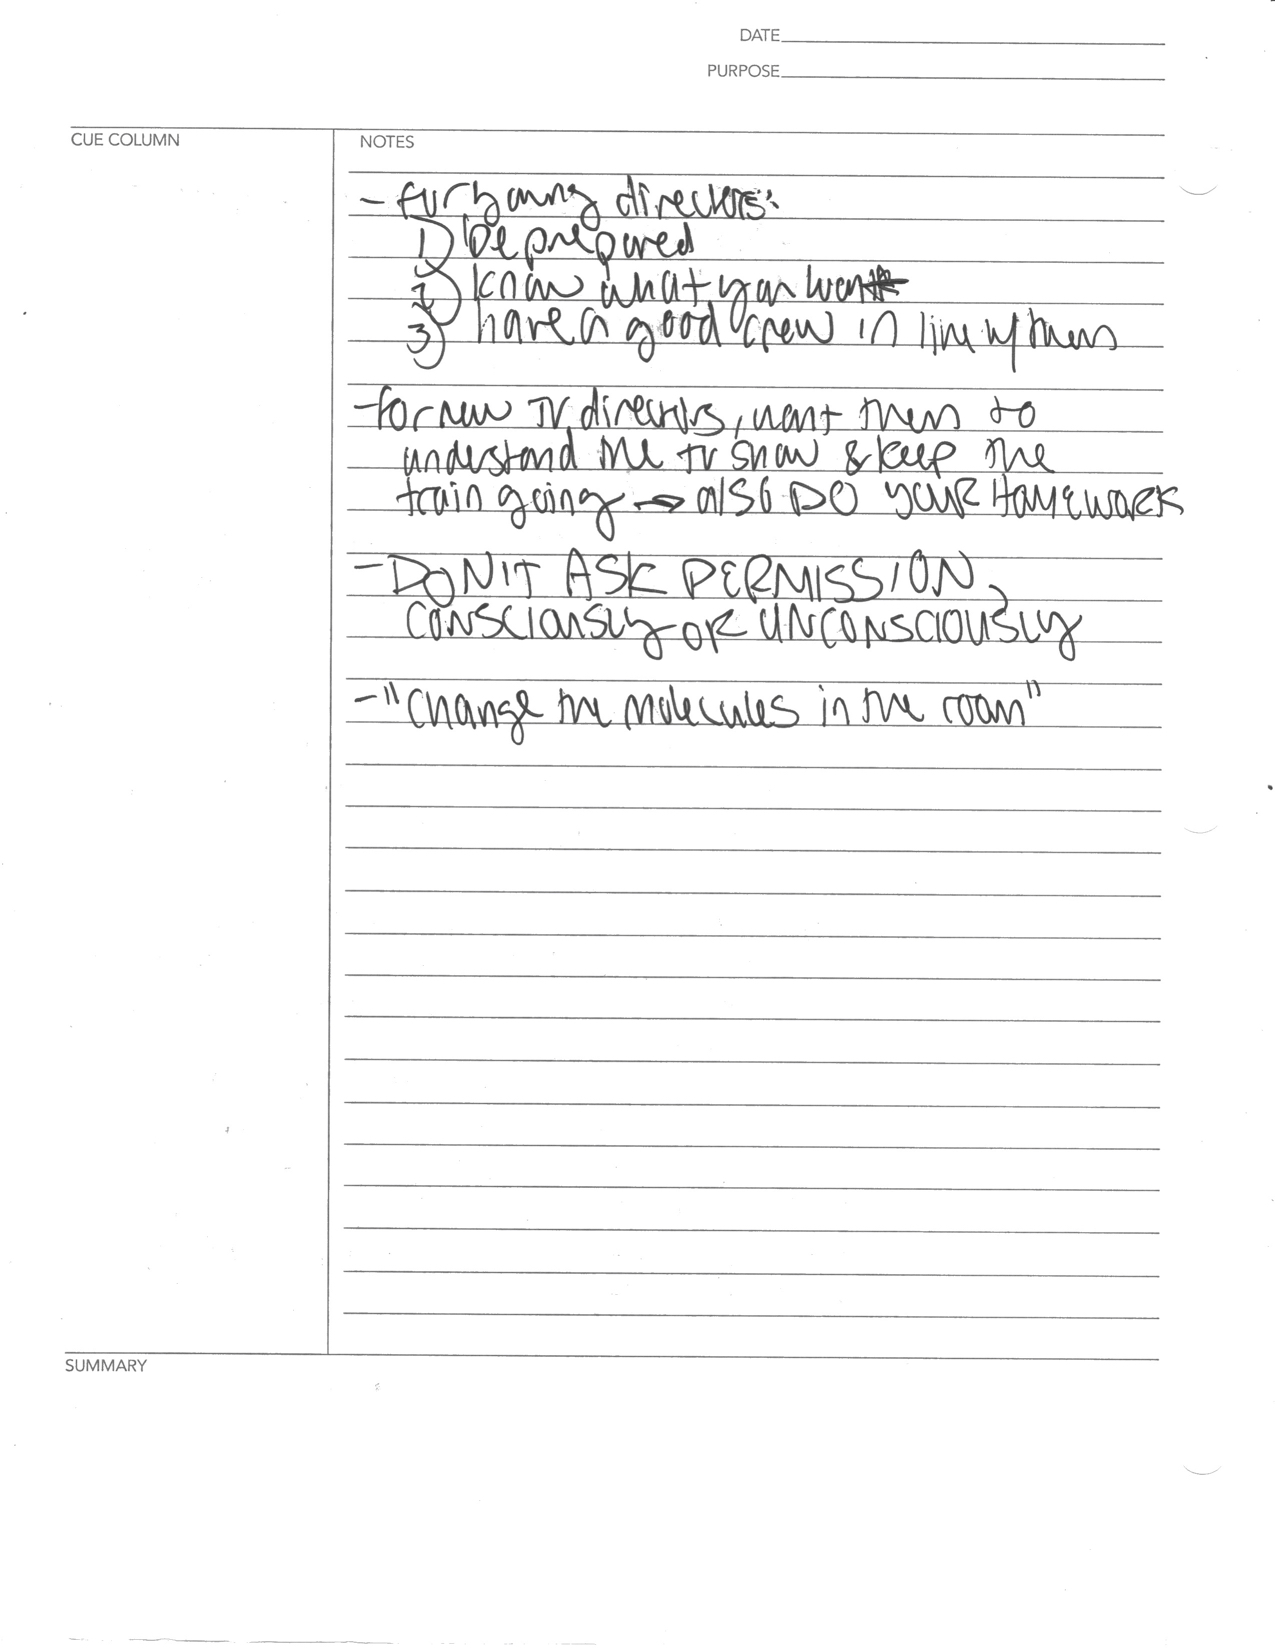 DATE
PURPOSE
CUE COLUMN
NOTES
- for young directors:
1) be prepared
2) know what you want
3) have a good crew in line w/ them
- for new TV directors, want them to
understand the TV show & keep the
train going → also DO YOUR HOMEWORK
- DON'T ASK PERMISSION,
CONSCIOUSLY OR UNCONSCIOUSLY
- "Change the molecules in the room"
SUMMARY